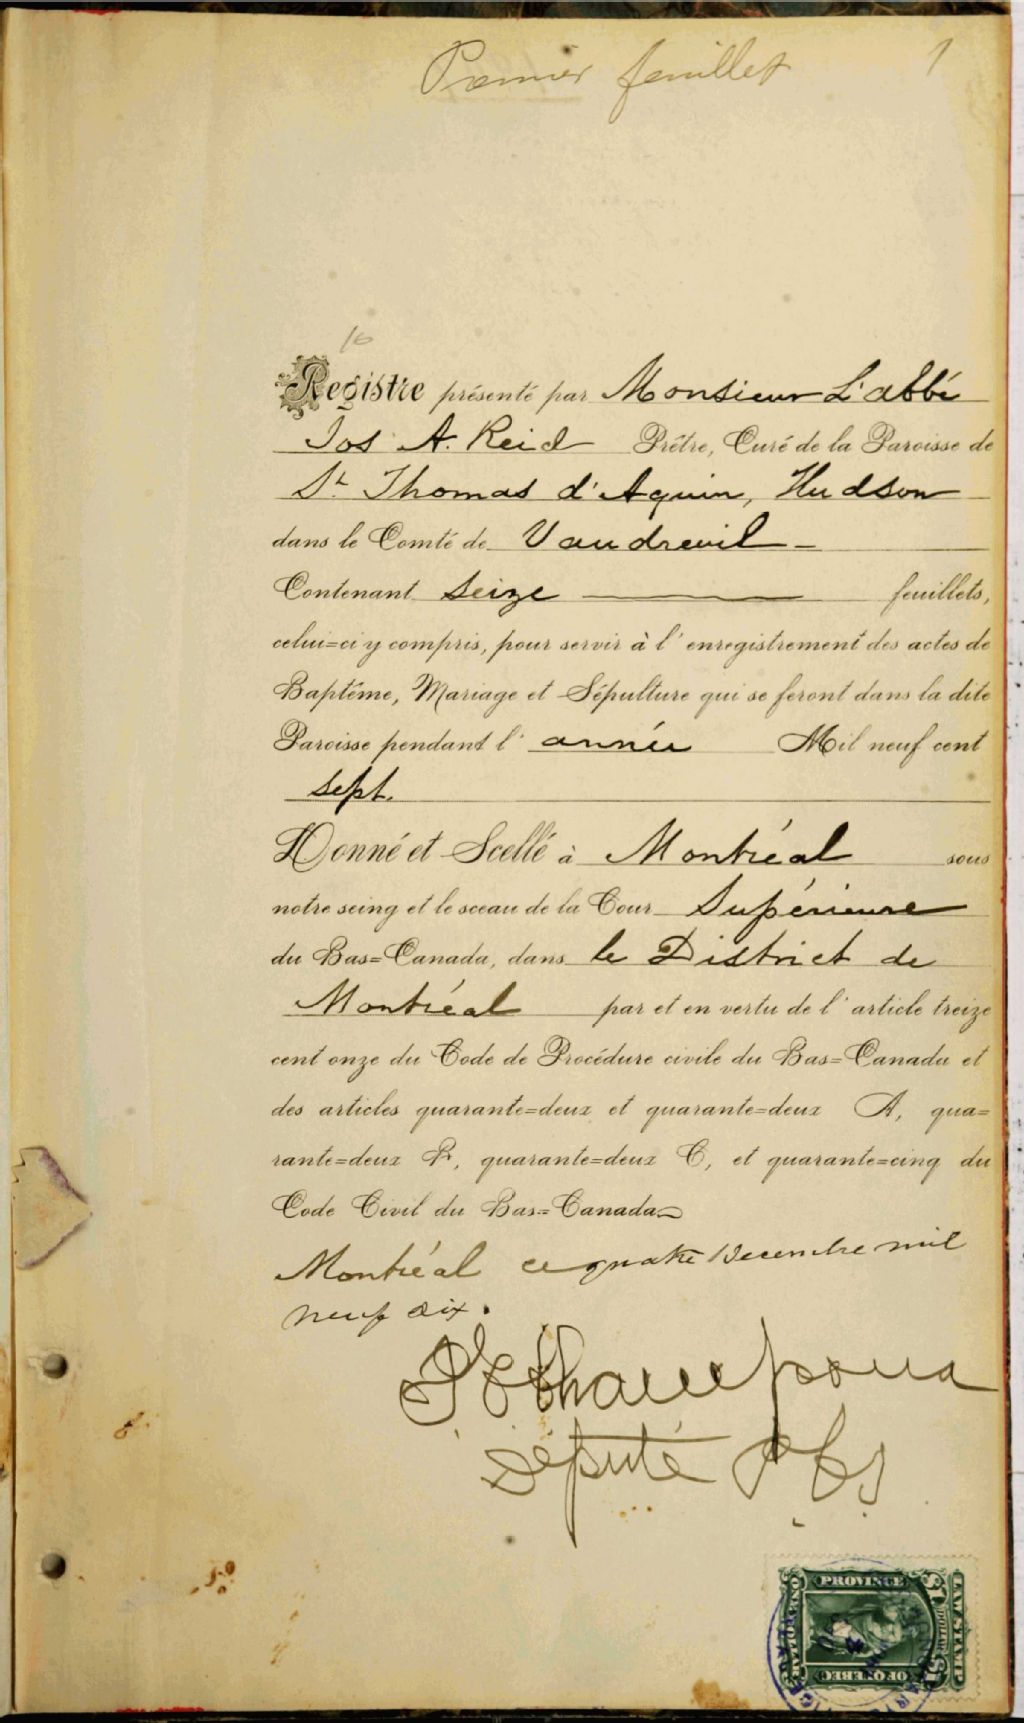 Premier feuillet 1
16
Registre présenté par Monsieur L'abbé
Jos A. Reid Prêtre, Curé de la Paroisse de
St Thomas d'Aquin, Hudson
dans le Comté de Vaudreuil
Contenant Seize feuillets,
celui=ci y compris, pour servir à l'enregistrement des actes de
Baptême, Mariage et Sépulture qui se feront dans la dite
Paroisse pendant l'année Mil neuf cent
sept.
Donné et Scellé à Montréal sous
notre seing et le sceau de la Cour Supérieure
du Bas=Canada, dans le District de
Montréal par et en vertu de l'article treize
cent onze du Code de Procédure civile du Bas=Canada et
des articles quarante=deux et quarante=deux A, qua=
rante=deux B, quarante=deux C, et quarante=cinq du
Code Civil du Bas=Canada
Montréal ce quatre Decembre mil
neuf six.
Député P
PROVINCE
OF QUEBEC
LAW STAMP
ONE DOLLAR
$1